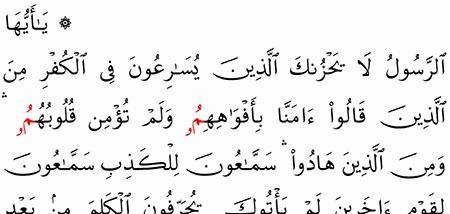 ۞ يَـٰٓأَيُّهَا
ٱلرَّسُولُ لَا يَحْزُنكَ ٱلَّذِينَ يُسَـٰرِعُونَ فِى ٱلْكُفْرِ مِنَ
ٱلَّذِينَ قَالُوا۟ ءَامَنَّا بِأَفْوَٰهِهِمُۥ وَلَمْ تُؤْمِن قُلُوبُهُمُۥ ۛ
وَمِنَ ٱلَّذِينَ هَادُوا۟ ۛ سَمَّـٰعُونَ لِلْكَذِبِ سَمَّـٰعُونَ
لِقَوْمٍ ءَاخَرِينَ لَمْ يَأْتُوكَ يُحَرِّفُونَ ٱلْكَلِمَ مِنۢ بَعْدِ